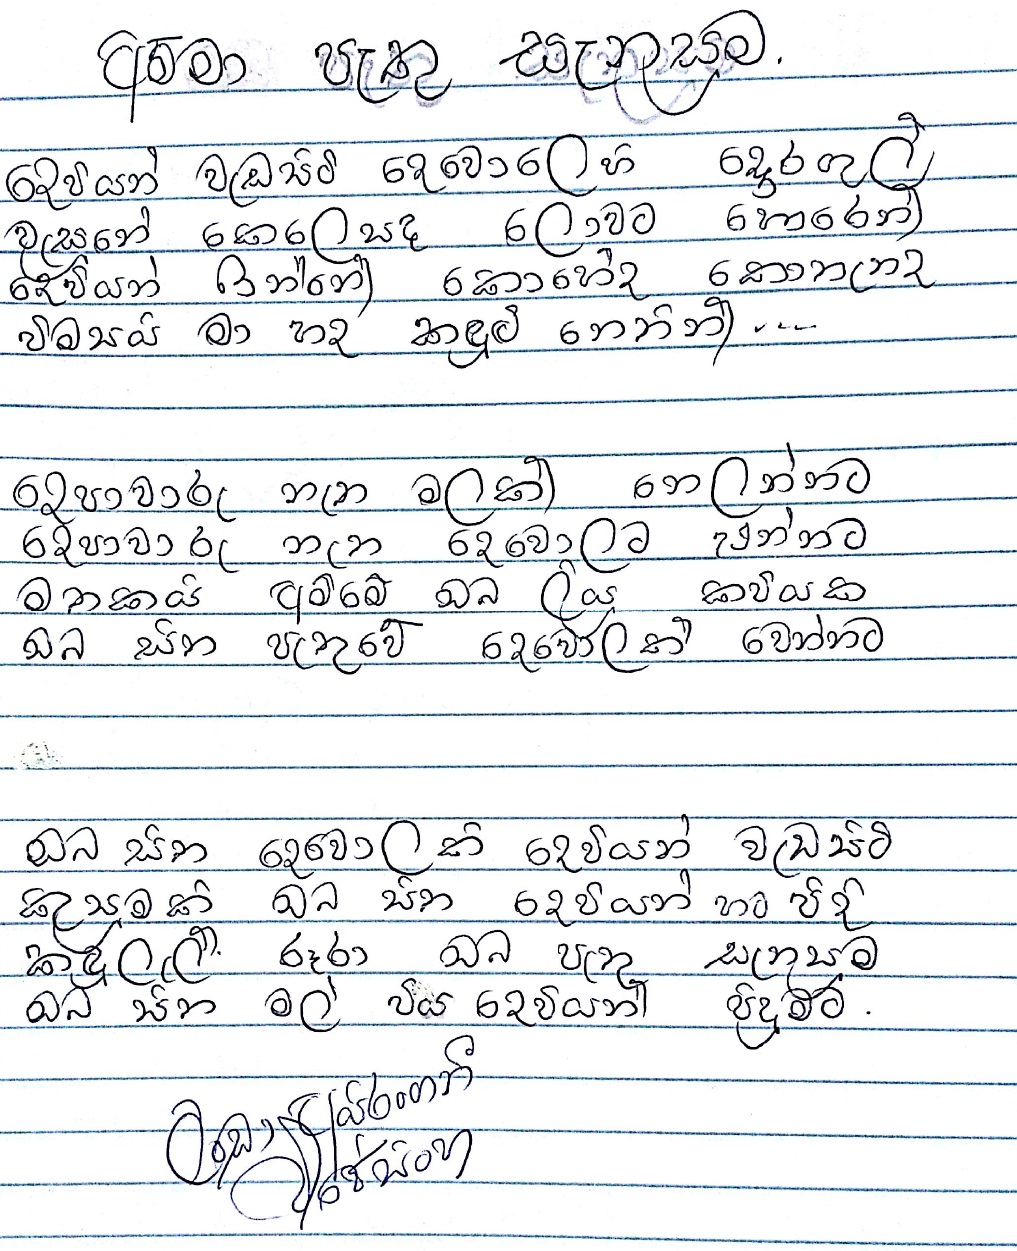 අම්මා පැතූ සැනසුම.
දෙවියන් වැඩසිටි දෙවොලෙහි දොරගුලු
වැසුනේ කෙලෙසද ලොවට හොරෙන්
දෙවියන් ඉන්නේ කොහේද කොතැනද
විමසයි මා හද කඳුළු නෙතින් ....
දෙපාවාරු නැත මලක් නෙලන්නට
දෙපාවාරු නැත දෙවොලට දුවන්නට
මතකයි අම්මේ ඔබ ලියූ කවියක
ඔබ සිත පැතුවේ දෙවොලක් වෙන්නට
ඔබ සිත දෙවොලකි දෙවියන් වැඩසිටි
කුසුමකි ඔබ සිත දෙවියන් හට පිදි
කඳුලැලි රූරා ඔබ පැතූ සැනසුම
ඔබ සිත මල් විය දෙවියන් පිදුමට.